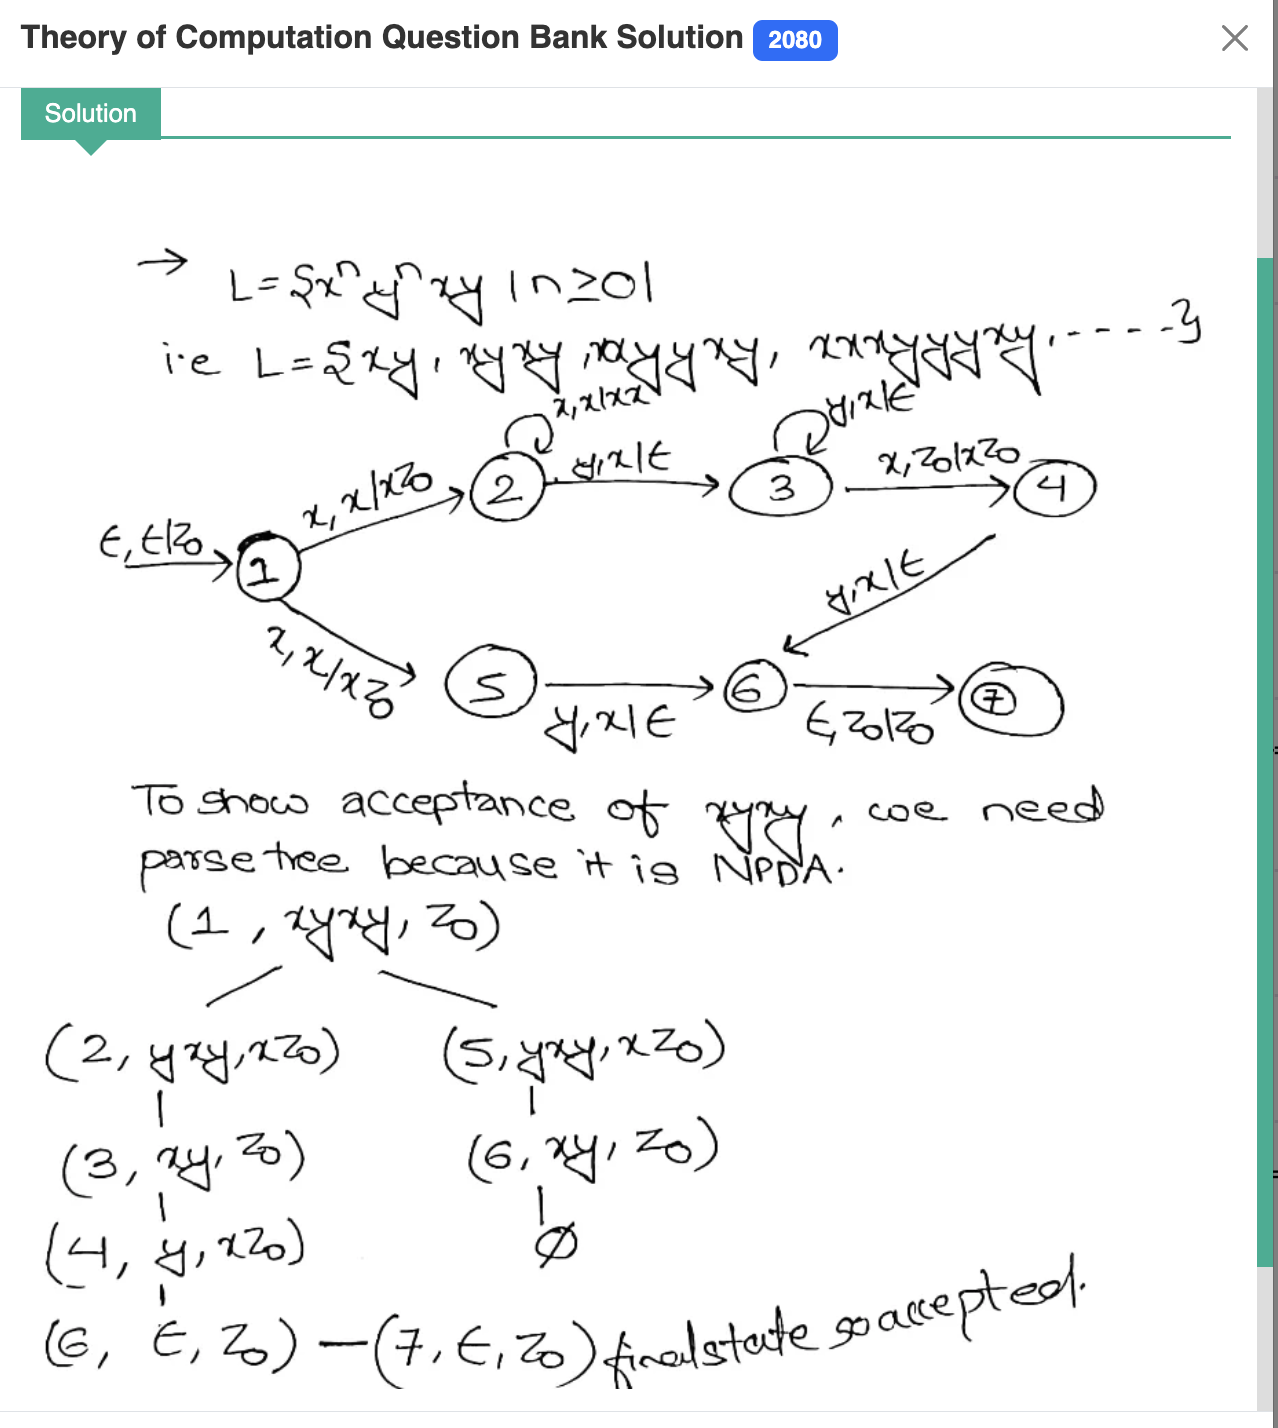 Theory of Computation Question Bank Solution 2080
Solution
→ L = {xⁿyⁿxy | n ≥ 0|
i.e L = {xy, xyxy, xxyyxy, xxxyyyxy, ----}
x, x|xx
y, x|ε
x, x|xz₀
2
y, x|ε
3
x, z₀|xz₀
4
ε, ε|z₀
1
y, x|ε
x, x/xz₀
5
y, x|ε
6
ε, z₀|z₀
7
To show acceptance of xyxy, we need
parse tree because it is NPDA.
(1, xyxy, z₀)
(2, yxy, xz₀) (5, yxy, xz₀)
(3, xy, z₀) (6, xy, z₀)
(4, y, xz₀) ∅
(6, ε, z₀) — (7, ε, z₀) final state so accepted.